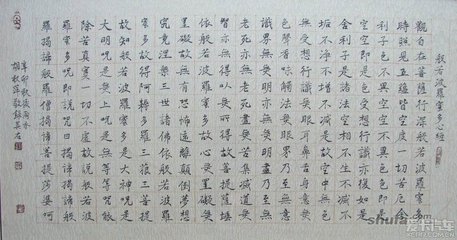 般若波羅蜜多心經
觀自在菩薩行深般若波羅蜜多
時照見五蘊皆空度一切苦厄舍
利子色不異空空不異色色即是
空空即是色受想行識亦復如是
舍利子是諸法空相不生不滅不
垢不淨不增不減是故空中無色
無受想行識無眼耳鼻舌身意無
色聲香味觸法無眼界乃至無意
識界無無明亦無無明盡乃至無
老死亦無老死盡無苦集滅道無
智亦無得以無所得故菩提薩埵
依般若波羅蜜多故心無罣礙無
罣礙故無有恐怖遠離顛倒夢想
究竟涅槃三世諸佛依般若波羅
蜜多故得阿耨多羅三藐三菩提
故知般若波羅蜜多是大神咒是
大明咒是無上咒是無等等咒能
除苦真實一切不虛故說般若波
羅蜜多咒即說咒曰揭諦揭諦般
羅揭諦般羅僧揭諦菩提薩婆訶
shufa
爱卡汽车